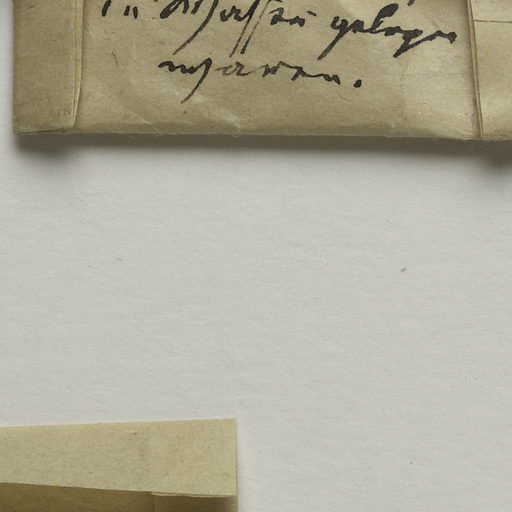 in Wasser gelegen
waren.